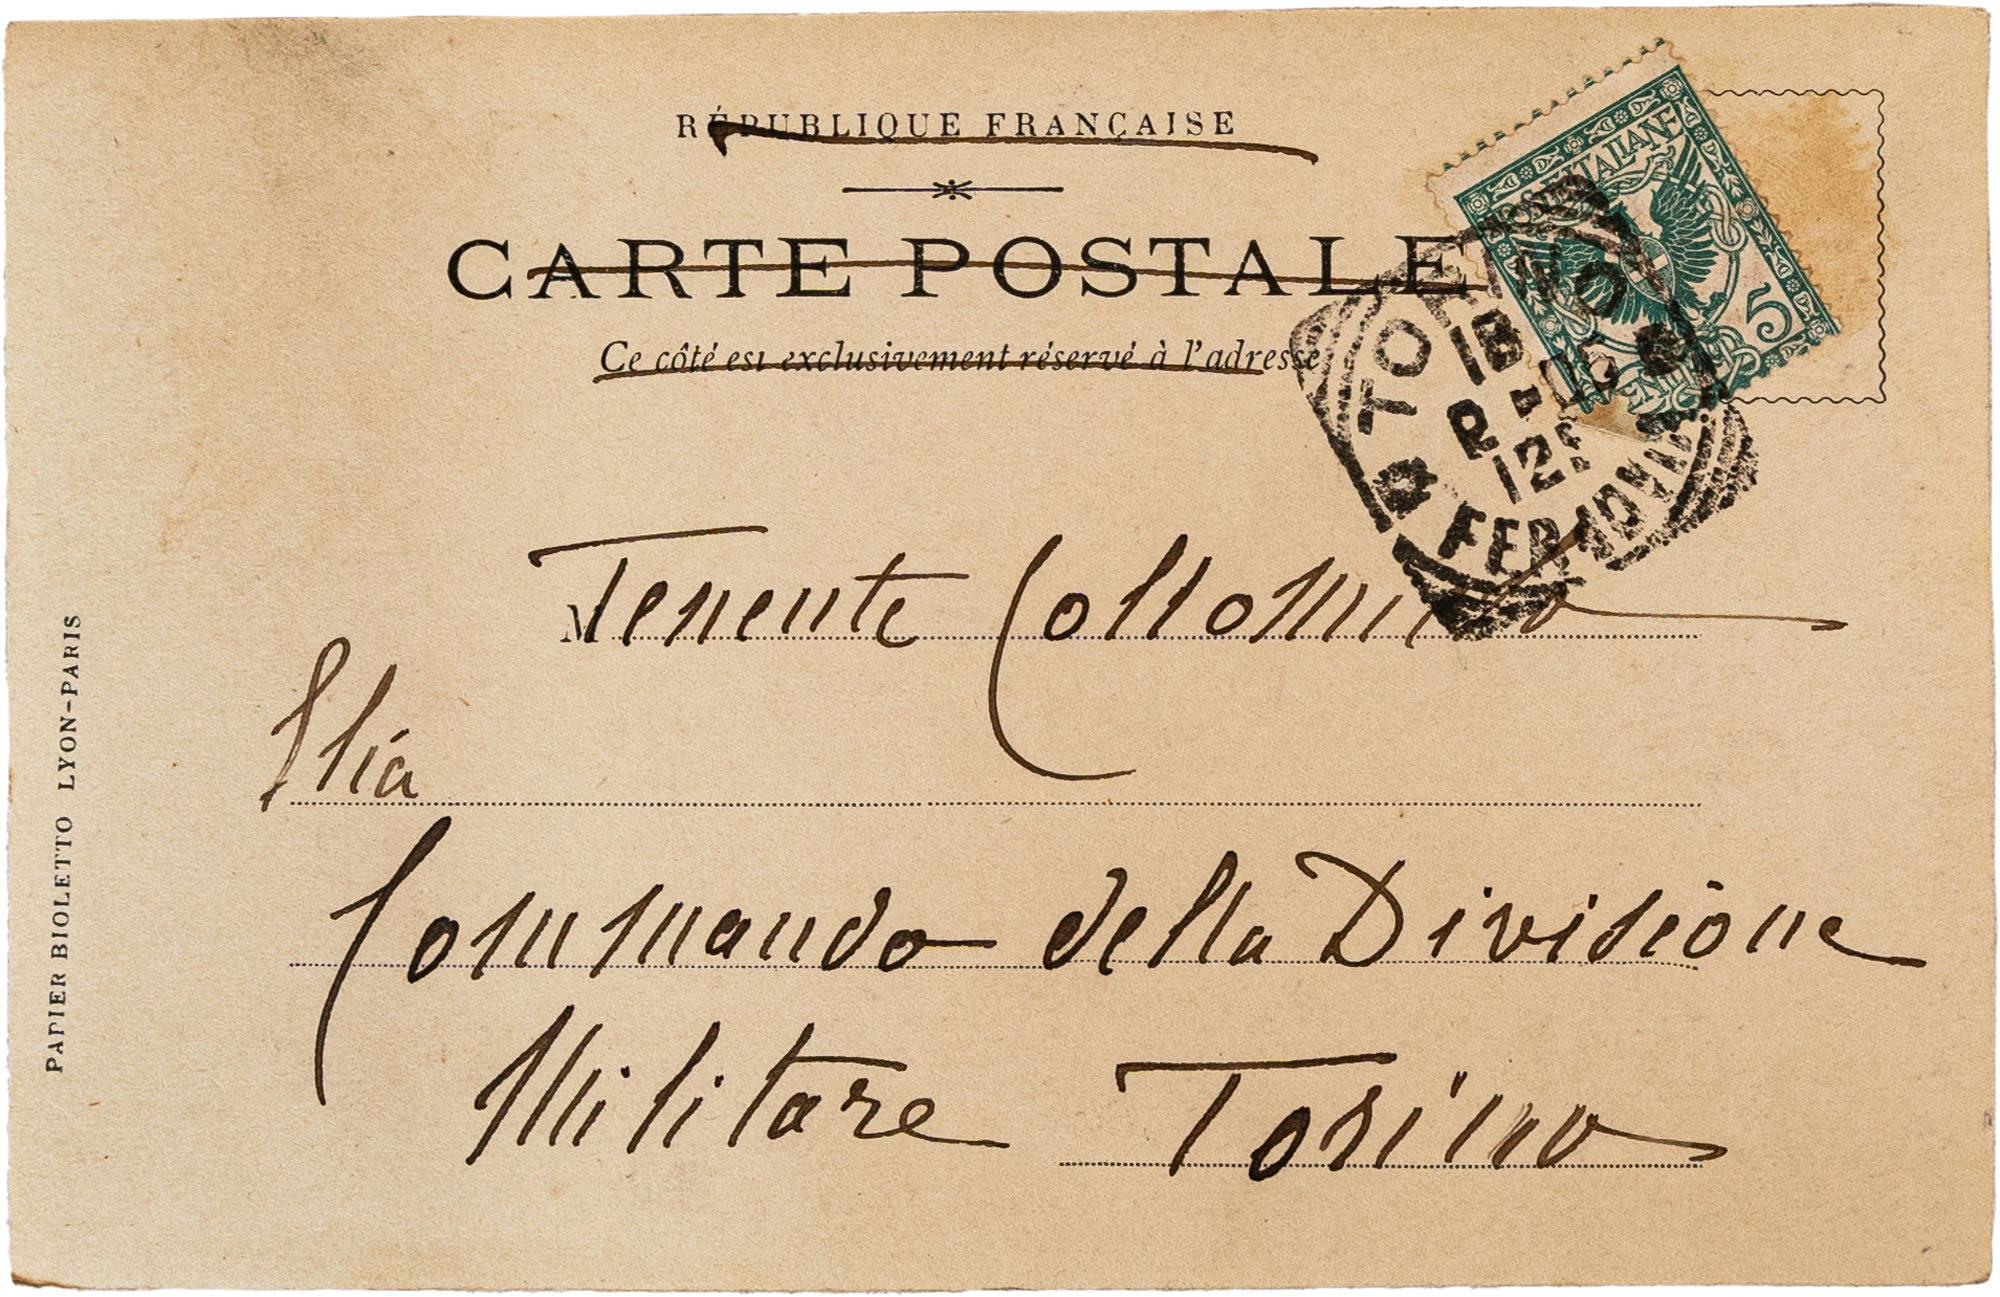 RÉPUBLIQUE FRANÇAISE
CARTE POSTALE
Ce côté est exclusivement réservé à l'adresse
POSTE ITALIANE
5
TORINO
FERROVIA
M Tenente
Commando della Divisione
Militare Torino
PAPIER BIOLETTO LYON-PARIS